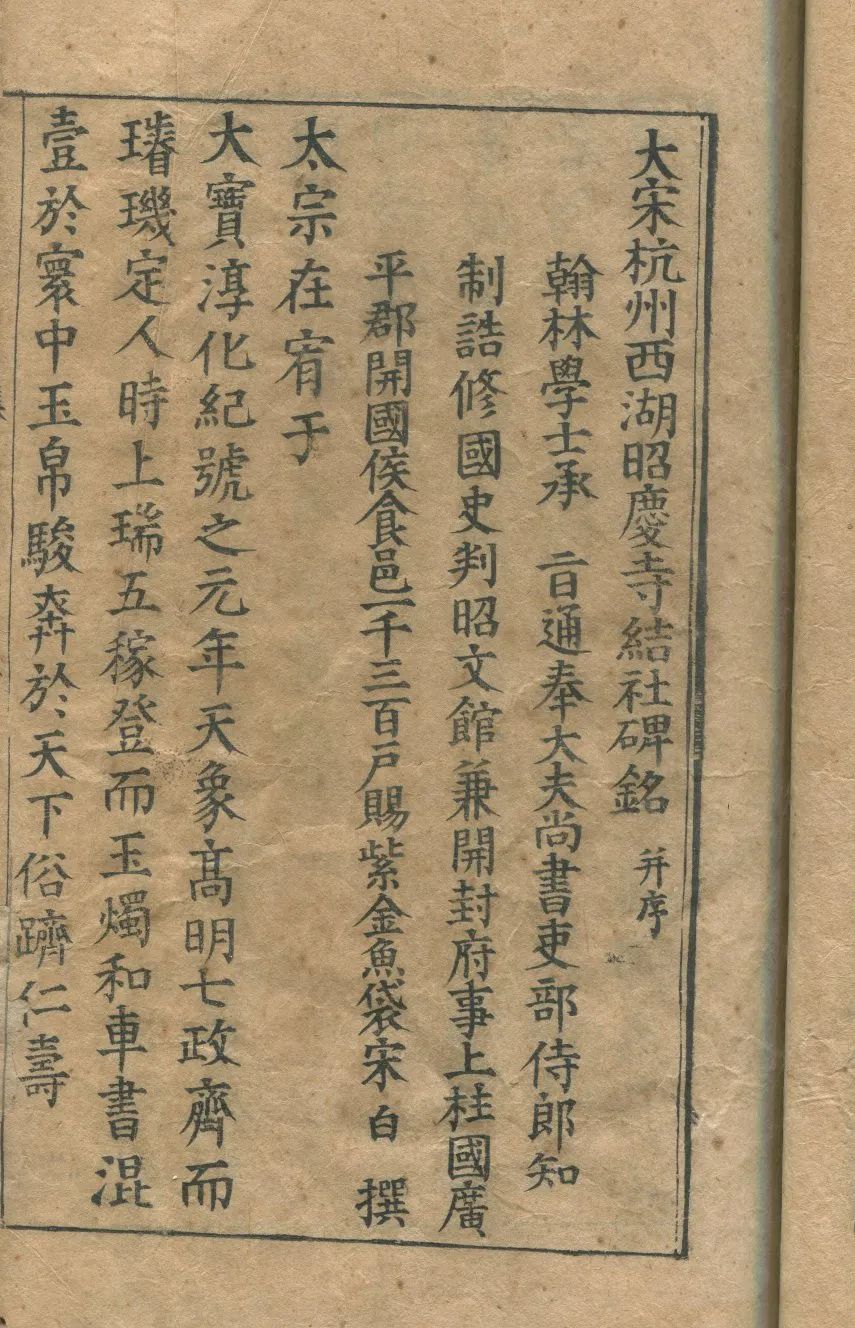 大宋杭州西湖昭慶寺結社碑銘 并序
翰林學士承 旨通奉大夫尚書吏部侍郎知
制誥修國史判昭文館兼開封府事上柱國廣
平郡開國侯食邑一千三百戶賜紫金魚袋宋白 撰
太宗在宥于
大寶淳化紀號之元年天象高明七政齊而
璿璣定人時上瑞五稼登而玉燭和車書混
壹於寰中玉帛駿奔於天下俗躋仁壽